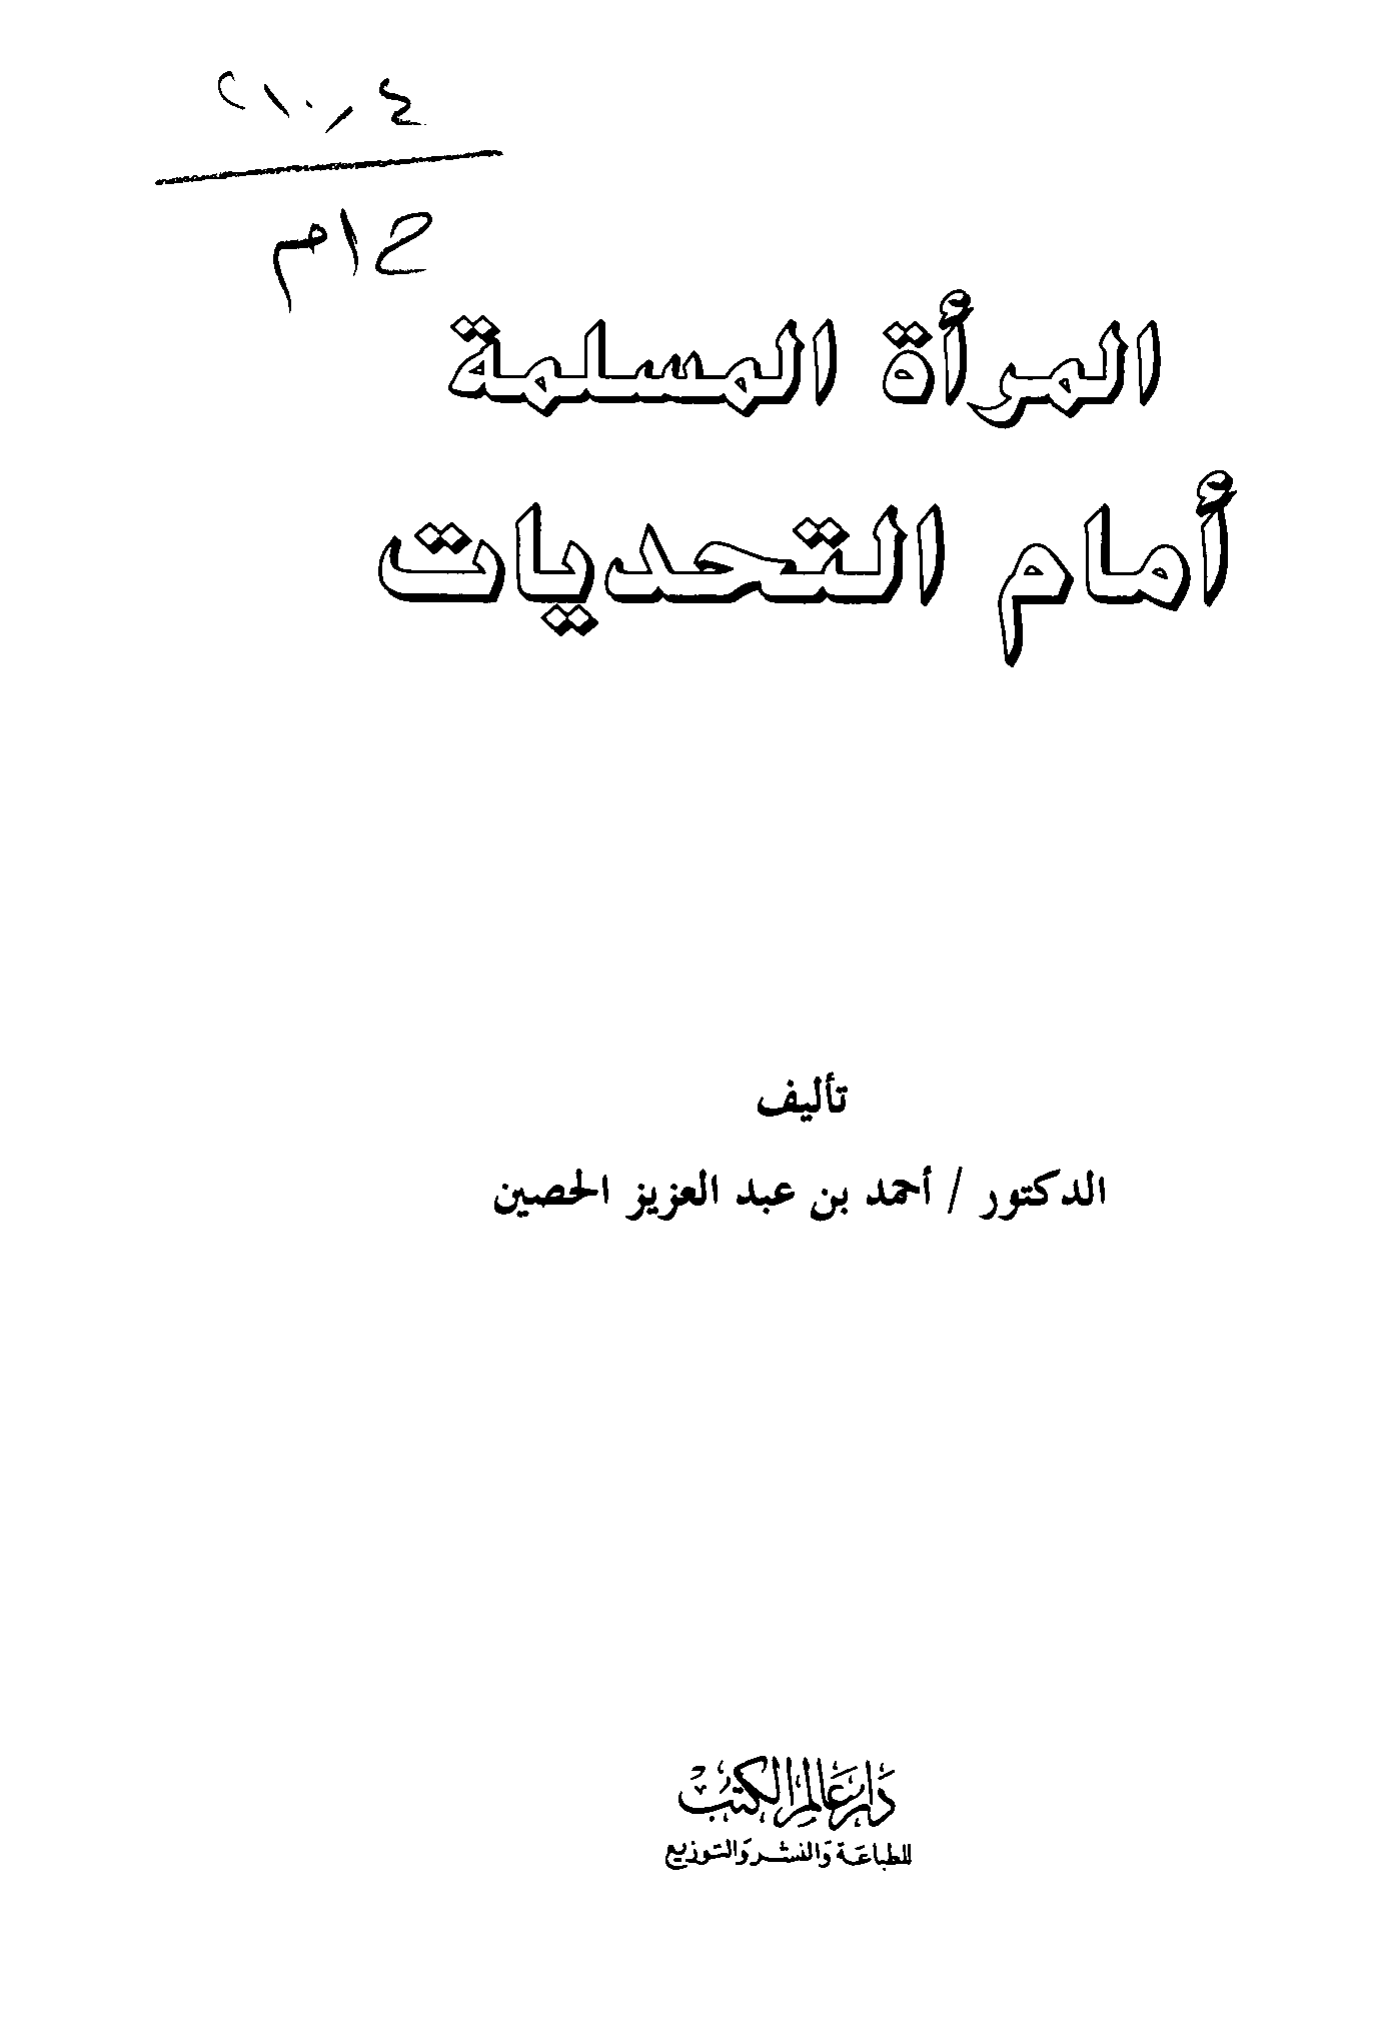 ح ا م
المرأة المسلمة
أمام التحديات
تأليف
الدكتور / أحمد بن عبد العزيز الحصين
دار عالم الكتب
للطباعة والنشر والتوزيع